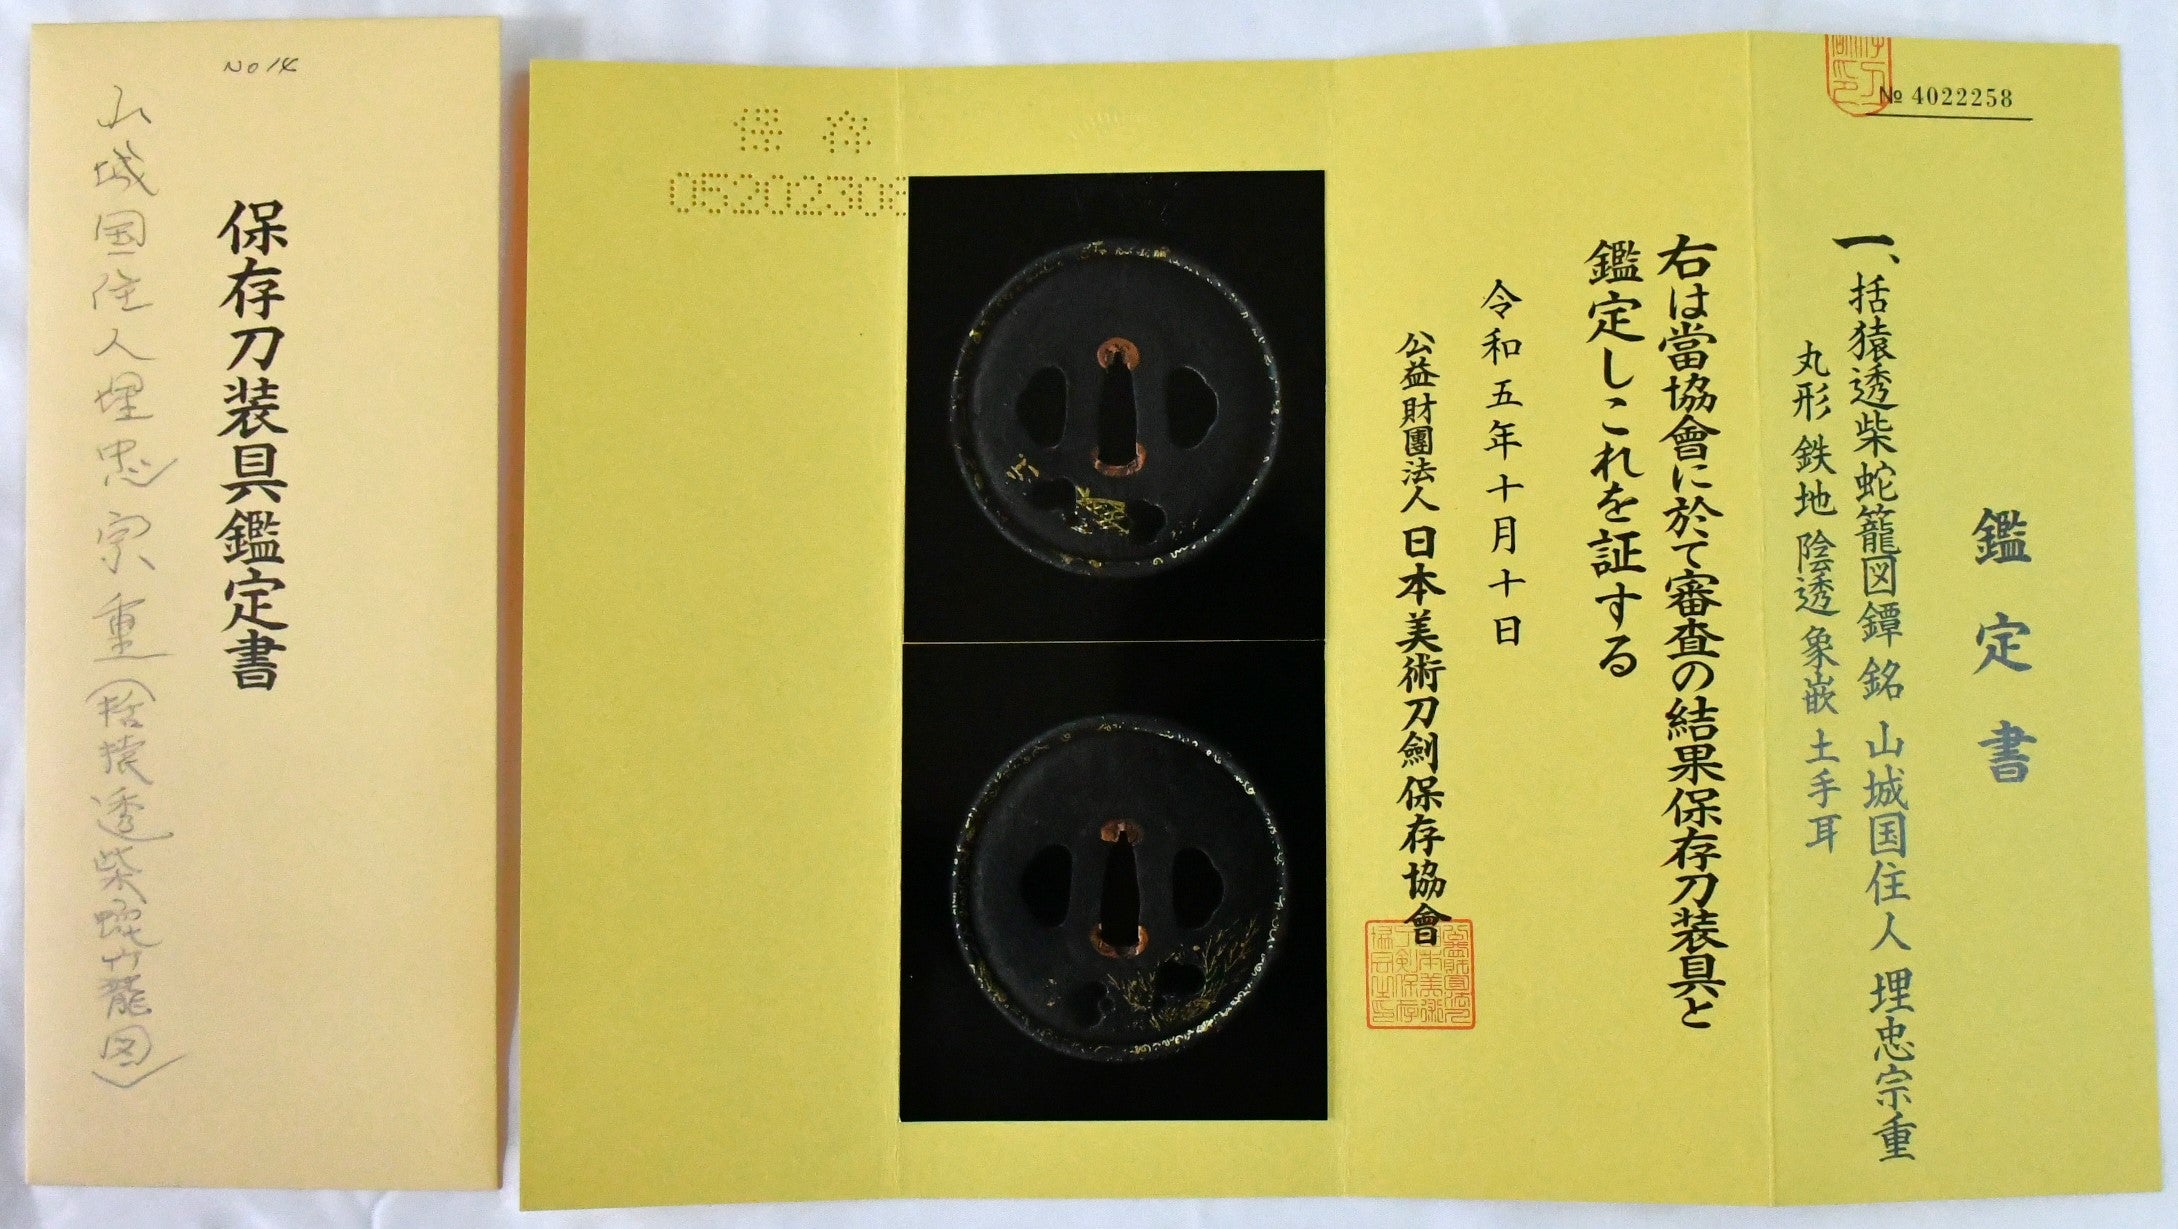 No14
保存刀装具鑑定書
山城国住人埋忠宗重(括猿透柴蛇籠図)
№ 4022258
鑑定書
一、括猿透柴蛇籠図鐔 銘 山城国住人 埋忠宗重
丸形 鉄地 陰透 象嵌 土手耳
右は當協會に於て審査の結果保存刀装具と
鑑定しこれを証する
令和五年十月十日
公益財團法人 日本美術刀劍保存協會
保存
0520230